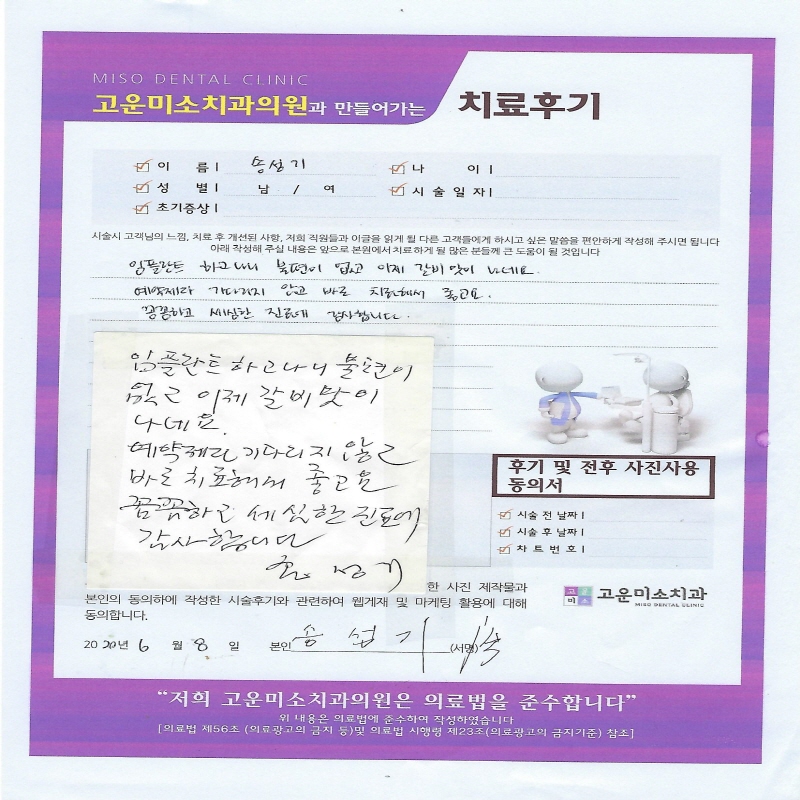 MISO DENTAL CLINIC
고운미소치과의원과 만들어가는 치료후기
이 름 | 송섭기 나 이 |
성 별 | 남 / 여 시술일자 |
초기증상 |
시술시 고객님의 느낌, 치료 후 개선된 사항, 저희 직원들과 이글을 읽게 될 다른 고객들에게 하시고 싶은 말씀을 편안하게 작성해 주시면 됩니다
아래 작성해 주실 내용은 앞으로 본원에서 치료하게 될 많은 분들께 큰 도움이 될 것입니다
임플란트 하고나니 불편이 없고 이제 갈비 맛이 나네요.
예약제라 기다리지 않고 바로 치료해서 좋고요.
꼼꼼하고 세심한 진료에 감사합니다.
임플란트 하고나니 불편이
없고 이제 갈비맛이
나네요.
예약제라 기다리지 않고
바로 치료해서 좋고요
꼼꼼하고 세심한 진료에
감사합니다
송 섭기
후기 및 전후 사진사용
동의서
시술 전 날짜 |
시술 후 날짜 |
차 트 번 호 |
한 사진 제작물과
본인의 동의하에 작성한 시술후기와 관련하여 웹게재 및 마케팅 활용에 대해
동의합니다.
고운미소
고운미소치과
MISO DENTAL CLINIC
2020년 6 월 8 일 본인 송 섭 기 (서명)
“저희 고운미소치과의원은 의료법을 준수합니다”
위 내용은 의료법에 준수하여 작성하였습니다
[의료법 제56조 (의료광고의 금지 등)및 의료법 시행령 제23조(의료광고의 금지기준) 참조]